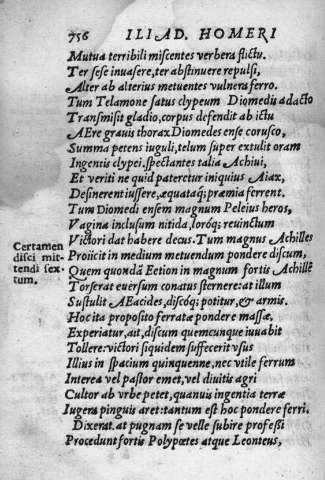 756 ILIAD. HOMERI
Mutua terribili miscentes verbera flictu.
Ter sese inuasere, ter abstinuere repulsi,
Alter ab alterius metuentes vulnera ferro.
Tum Telamone satus clypeum Diomedis adacto
Transmisit gladio, corpus defendit ab ictu
AEre grauis thorax Diomedes ense corusco,
Summa petens iuguli, telum super extulit oram
Ingentis clypei. spectantes talia Achiui,
Et veriti ne quid pateretur iniquius Aiax,
Desinerent iussere, æquataq; præmia ferrent.
Tum Diomedi ensem magnum Peleius heros,
Vagina inclusum nitida, loróq; reuinctum
Victori dat habere decus. Tum magnus Achilles
Certamen
disci mit-
tendi sex-
tum.
Proiicit in medium metuendum pondere discum,
Quem quondā Eetion in magnum fortis Achillē
Torserat euersum conatus sternere: at illum
Sustulit AEacides, discóq; potitur, & armis.
Hoc ita proposito ferratæ pondere massæ,
Experiatur, ait, discum quemcunque iuuabit
Tollere: victori siquidem suffecerit vsus
Illius in spacium quinquenne, nec vtile ferrum
Interea vel pastor emet, vel diuitis agri
Cultor ab vrbe petet, quanuis ingentia terræ
Iugera pinguis aret: tantum est hoc pondere ferri.
Dixerat. at pugnam se velle subire professi
Procedunt fortis Polypœtes atque Leonteus,